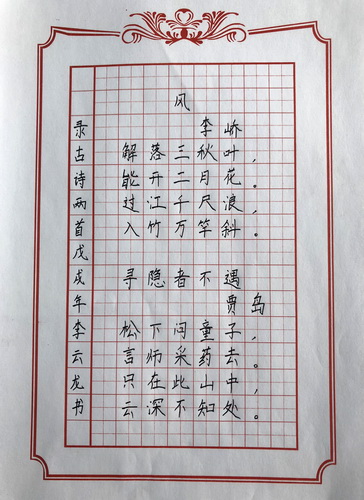 风
李峤
解落三秋叶，
能开二月花。
过江千尺浪，
入竹万竿斜。
寻隐者不遇
贾岛
松下问童子，
言师采药去。
只在此山中，
云深不知处。
录古诗两首戊戌年李云龙书